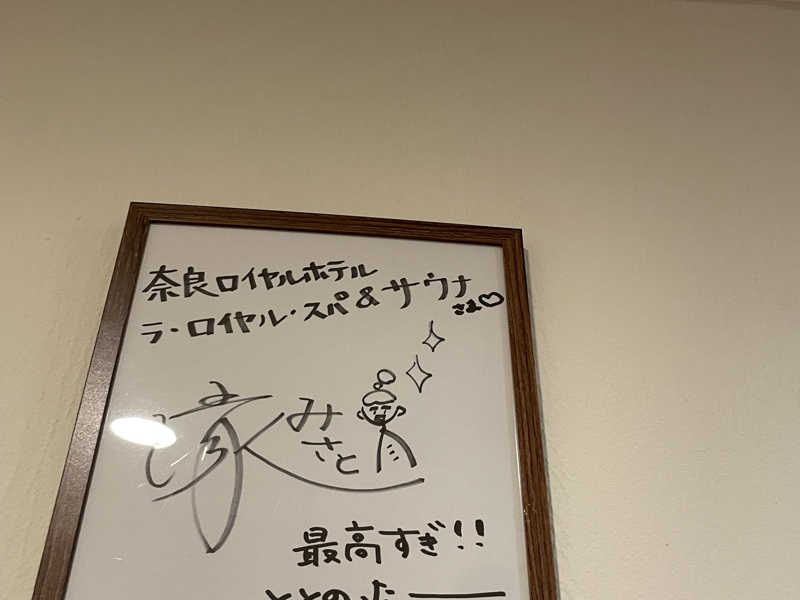 奈良ロイヤルホテル
ラ・ロイヤル・スパ&サウナ
さま♡
みさと
最高すぎ!!
ととのった──